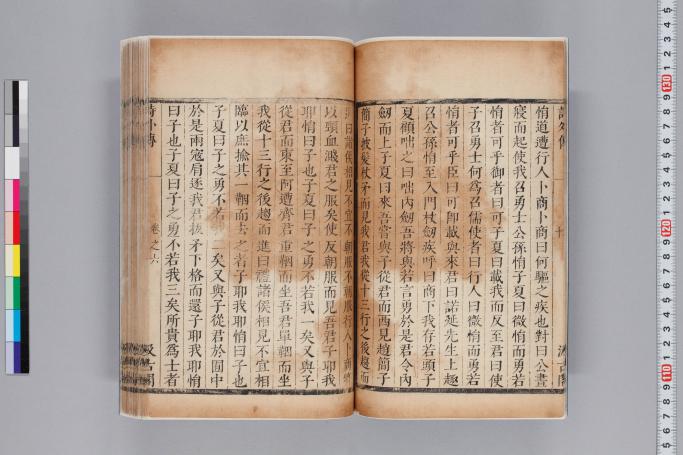 悁道遭行人卜商卜商曰何驅之疾也對曰公晝
寢而起使我召勇士公孫悁子夏曰微悁而勇若
悁者可乎御者曰可子夏曰載我而反至君曰使
子召勇士何爲召儒使者曰行人曰微悁而勇若
悁者可乎臣曰可卽載與來君曰諾延先生上趣
召公孫悁至入門杖劒疾呼曰商下我存若頭子
夏顧咄之曰咄內劒吾將與若言勇於是君令內
劒而上子夏曰來吾嘗與子從君而西見趙簡子
簡子披髮杖矛而見我君我從十三行之後趨而
曰諸侯相見不宜不朝服不朝服行人卜商將
以頸血濺君之服矣使反朝服而見吾君子耶我
耶悁曰子也子夏曰子之勇不若我一矣又與子
從君而東至阿遭齊君重鞇而坐吾君單鞇而坐
我從十三行之後趨而進曰禮諸侯相見不宜相
臨以庶揄其一鞇而去之者子耶我耶悁曰子也
子夏曰子之勇不若我二矣又與子從君於囿中
於是兩寇肩逐我君拔矛下格而還子耶我耶悁
曰子也子夏曰子之勇不若我三矣所貴爲士者
詩外傳
卷之六
汲古閣